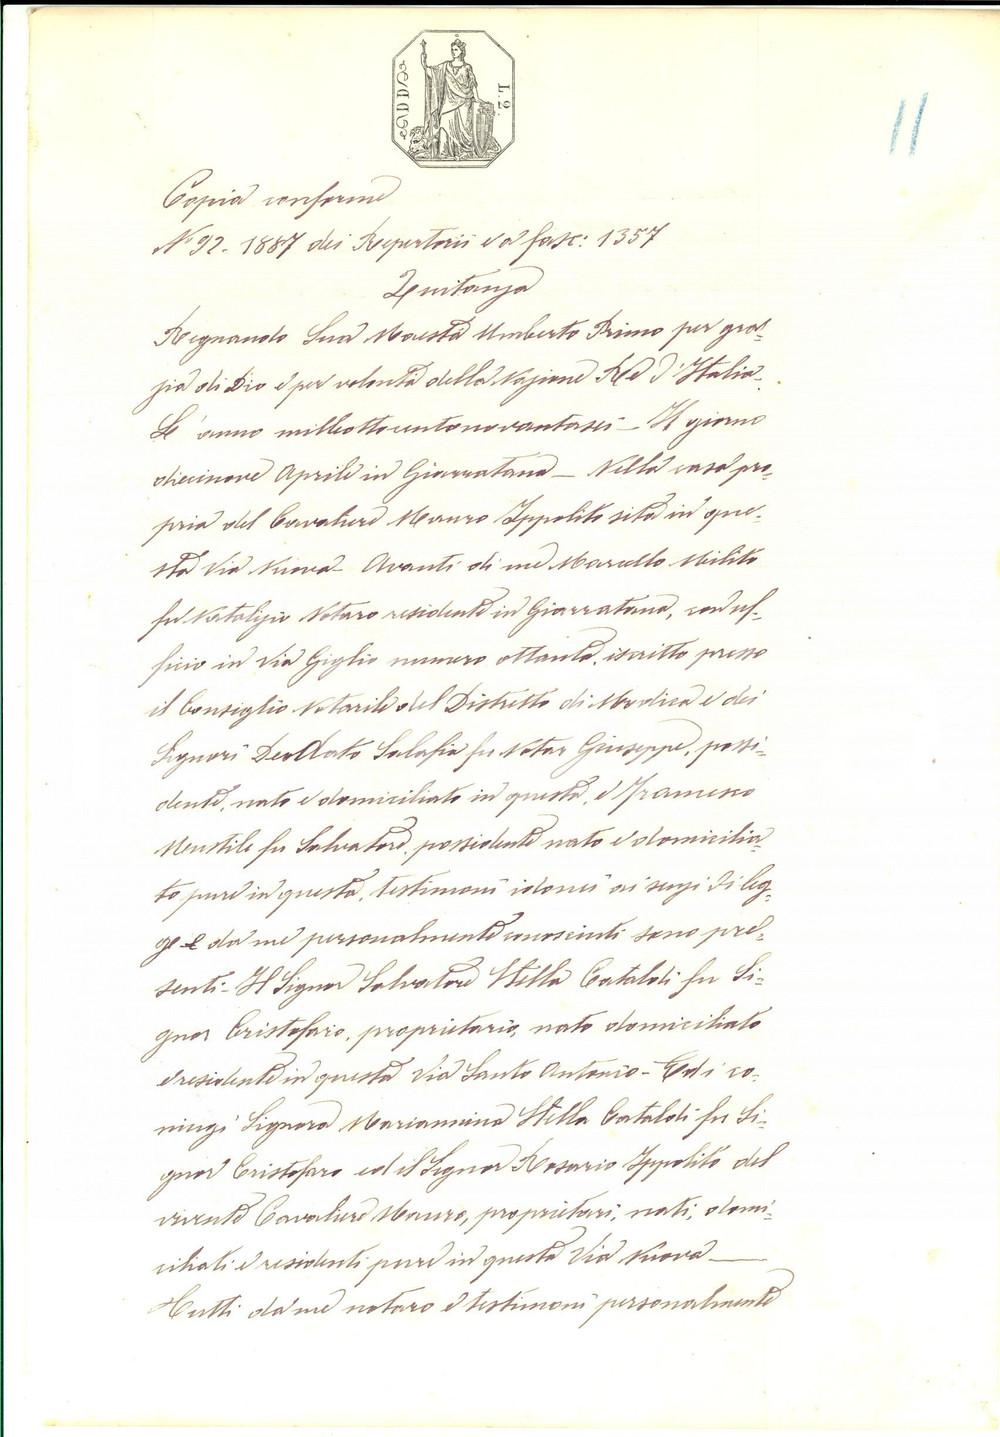 L. 2.
11
Copia conforme
N° 92. 1887 dei Repertorii ed a fasc: 1357
Quitanza
Regnando Sua Maestà Umberto Primo per gra-
zia di Dio e per volontà della Nazione Re d'Italia.
L'anno milleottocentonovantasei – Il giorno
diecinove Aprile in Giarratana – Nella casa pro-
pria del Cavaliere Mauro Ippolito sita in que-
sta Via Nuova – Avanti di me Marcello Milito
fu Natalizio Notaro residente in Giarratana, con uf-
ficio in Via Giglio numero ottanta, iscritto presso
il Consiglio Notarile del Distretto di Modica e dei
Signori Deodato Salafia fu Notar Giuseppe, possi-
dente, nato e domiciliato in questa, e Francesco
fu Salvatore, possidente nato e domicilia-
to pure in questa, testimoni idonei ai sensi di leg-
ge e da me personalmente conosciuti sono pre-
senti – Il Signor Salvatore Stella Cataldi fu Si-
gnor Cristofaro, proprietario, nato domiciliato
e residente in questa Via Santo Antonio – Ed i co-
niugi Signora Mariannina Stella Cataldi fu Si-
gnor Cristofaro ed il Signor Rosario Ippolito del
vivente Cavaliere Mauro, proprietari, nati, domi-
ciliati e residenti pure in questa Via Nuova –
Tutti da me notaro e testimoni personalmente